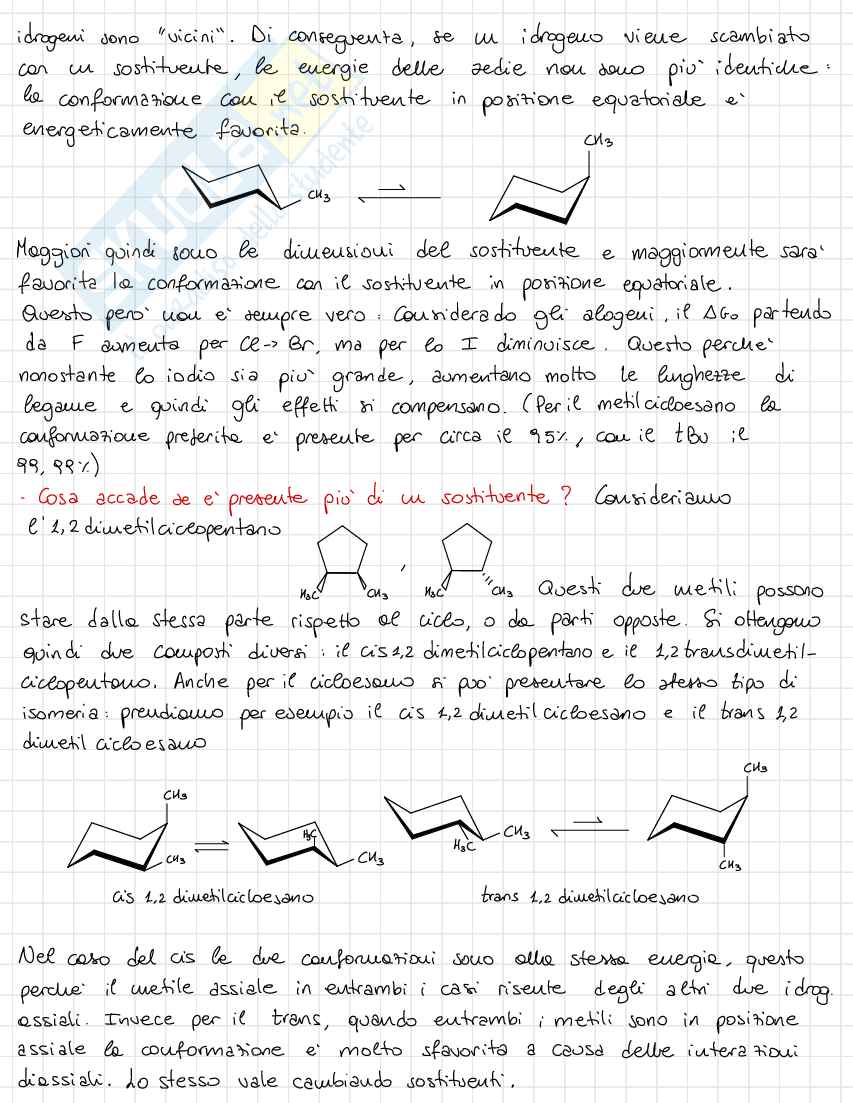 idrogeni sono "vicini". Di conseguenza, se un idrogeno viene scambiato
con un sostituente, le energie delle sedie non sono più identiche:
la conformazione con il sostituente in posizione equatoriale è
energeticamente favorita.
CH3
CH3
Maggiori quindi sono le dimensioni del sostituente e maggiormente sarà
favorita la conformazione con il sostituente in posizione equatoriale.
Questo però non è sempre vero: Considerado gli alogeni, il ΔG0 partendo
da F aumenta per Cl→Br, ma per lo I diminuisce. Questo perchè
nonostante lo iodio sia più grande, aumentano molto le lunghezze di
legame e quindi gli effetti si compensano. (Per il metilcicloesano la
conformazione preferita è presente per circa il 95%, con il tBu il
99,99%)
· Cosa accade se è presente più di un sostituente? Consideriamo
l'1,2 dimetilciclopentano
H3C CH3 , H3C CH3 Questi due metili possono
stare dalla stessa parte rispetto al ciclo, o da parti opposte. Si ottengono
quindi due composti diversi: il cis 1,2 dimetilciclopentano e il 1,2 transdimetil-
ciclopentano. Anche per il cicloesano si può presentare lo stesso tipo di
isomeria: prendiamo per esempio il cis 1,2 dimetil cicloesano e il trans 1,2
dimetil cicloesano
CH3
CH3
H3C
CH3
CH3
H3C
CH3
CH3
cis 1,2 dimetilcicloesano
trans 1,2 dimetilcicloesano
Nel caso del cis le due conformazioni sono alla stessa energia, questo
perchè il metile assiale in entrambi i casi risente degli altri due idrog.
assiali. Invece per il trans, quando entrambi i metili sono in posizione
assiale la conformazione è molto sfavorita a causa delle interazioni
diassiali. Lo stesso vale cambiando sostituenti.